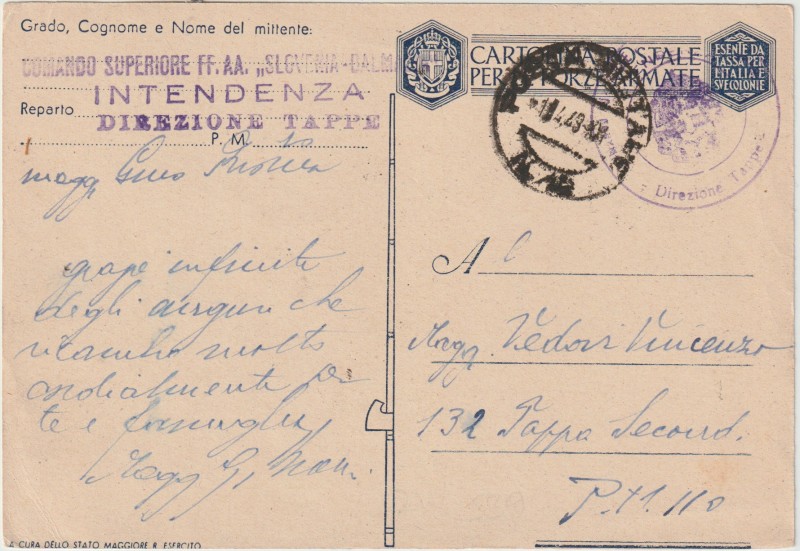 Grado, Cognome e Nome del mittente:
COMANDO SUPERIORE FF. AA. „SLOVENIA-DALM
INTENDENZA
Reparto
DIREZIONE TAPPE
P. M.
magg Gino
grazie infinite
degli auguri che
ricambio molto
cordialmente per
te e famiglia
Magg G.
A CURA DELLO STATO MAGGIORE R. ESERCITO
CARTOLINA POSTALE
PER LE FORZE ARMATE
ESENTE DA
TASSA PER
L'ITALIA E
SVE COLONIE
POSTA MILITARE
Direzione Tappe
Al
Magg. Vedovi Vincenzo
132 Tappa Second.
P.M. 110